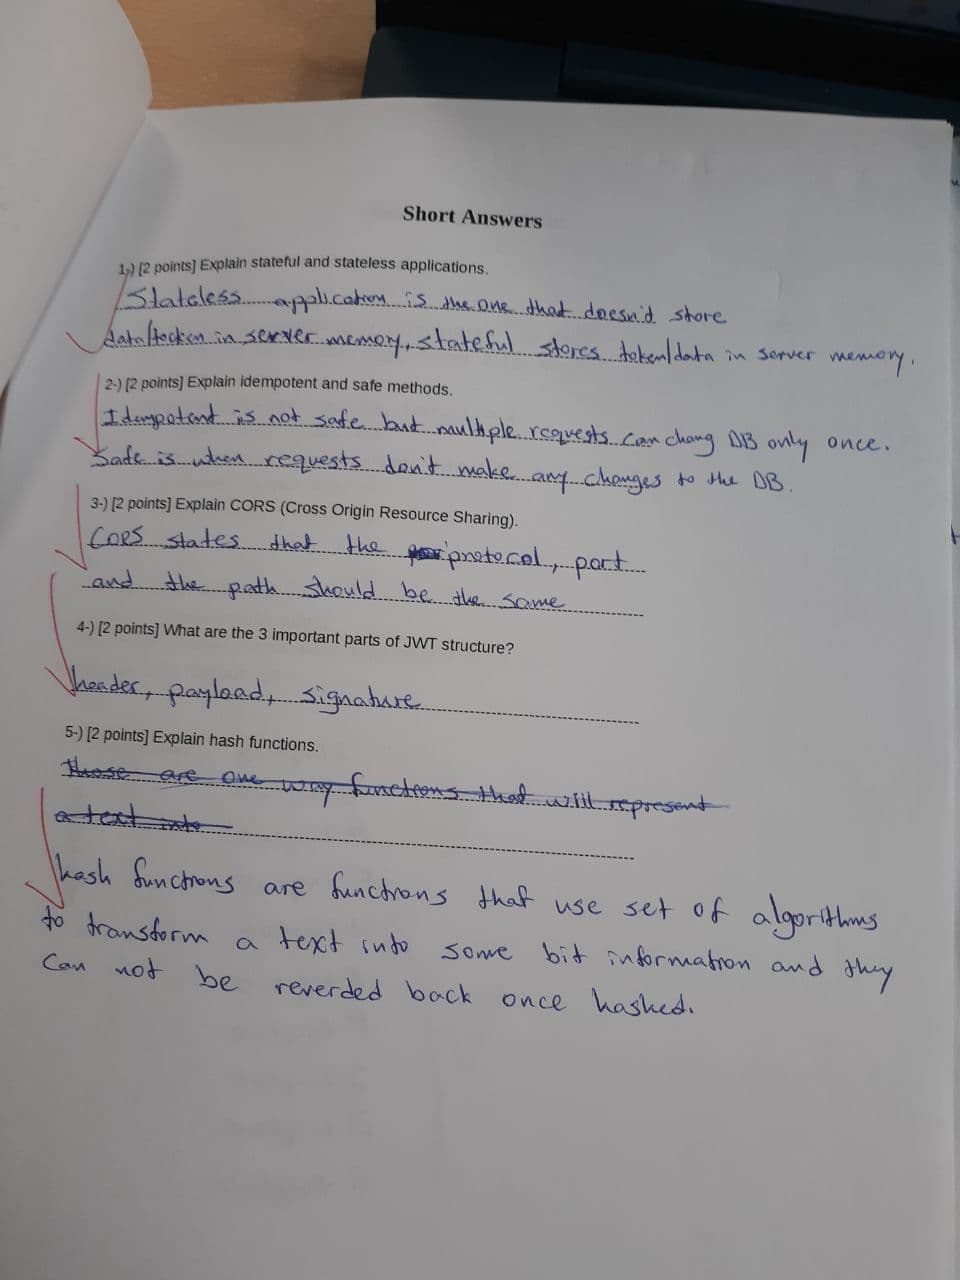 Short Answers
1-) [2 points] Explain stateful and stateless applications.
Stateless application is the one that doesn'd store
data/tocken in server memory, stateful stores token/data in server memory.
2-) [2 points] Explain idempotent and safe methods.
Idempotent is not safe but multiple requests can chang DB only once.
Safe is when requests don't make any changes to the DB.
3-) [2 points] Explain CORS (Cross Origin Resource Sharing).
CORS states that the protocol, port
and the path should be the same
4-) [2 points] What are the 3 important parts of JWT structure?
header, payload, signature
5-) [2 points] Explain hash functions.
those are one way functions that will represent
a text into
hash functions are functions that use set of algorithms
to transform a text into some bit information and they
can not be reverded back once hashed.